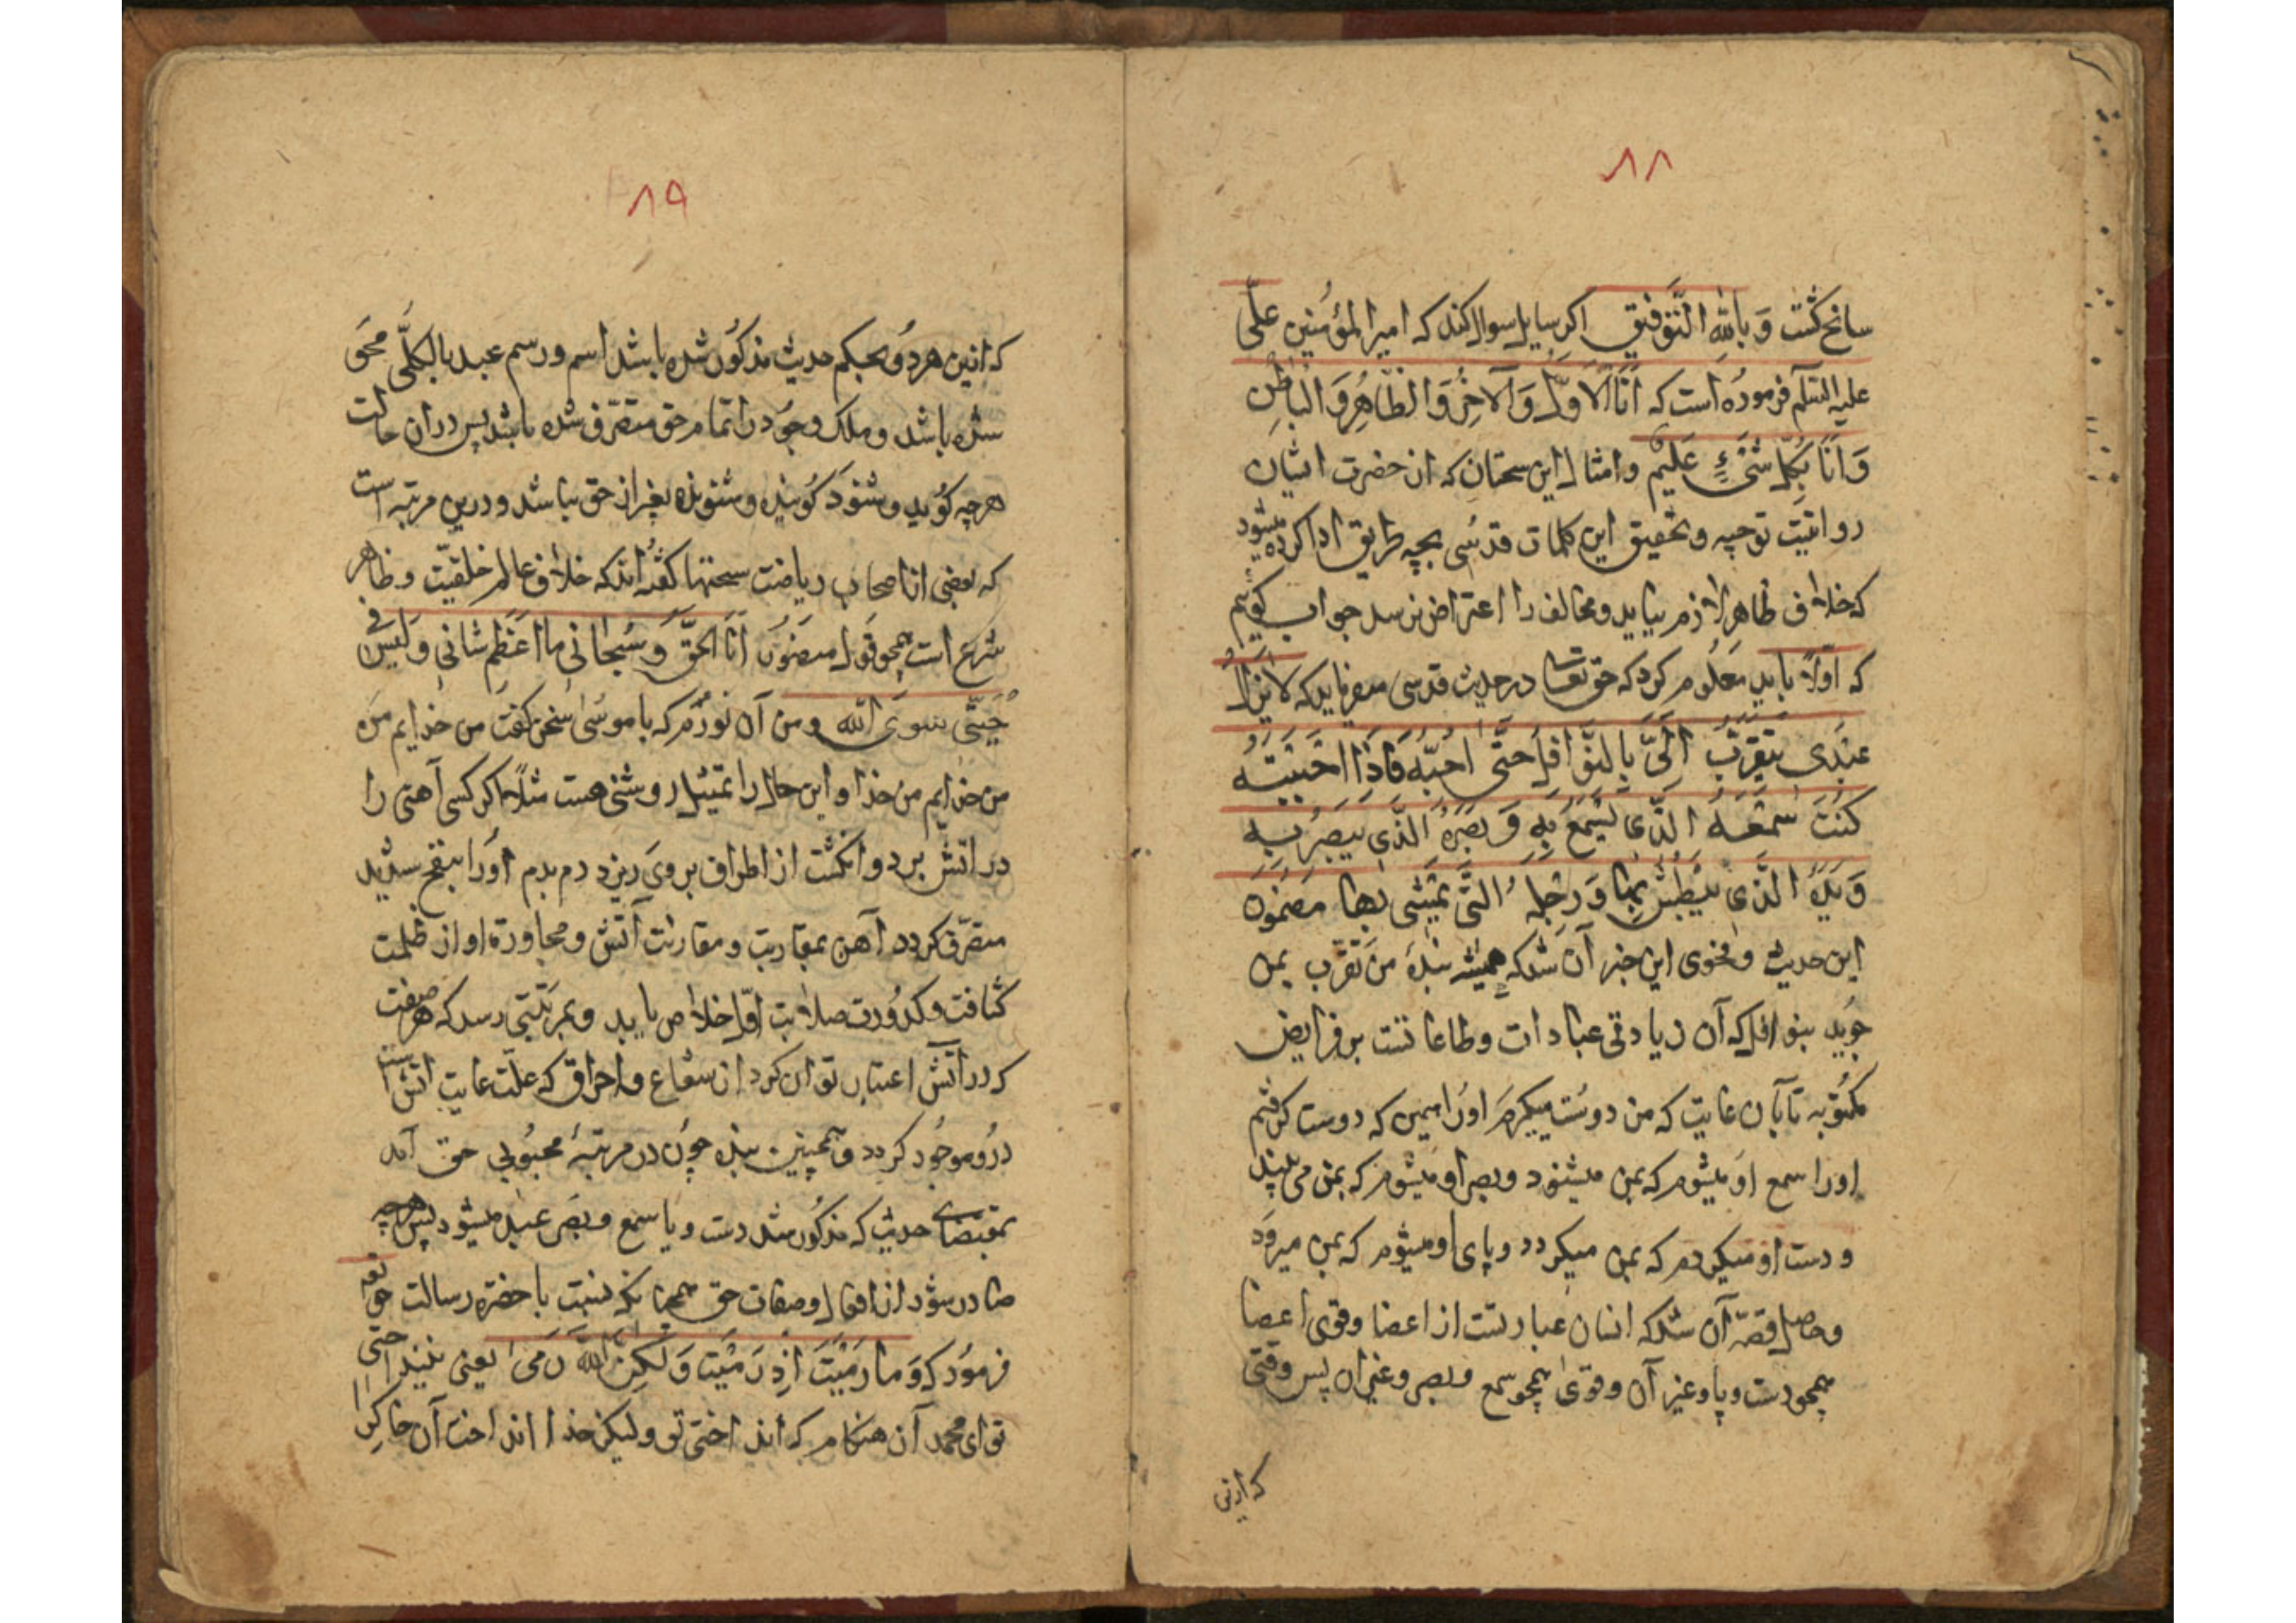 ۸۸
سانح کشت وَ بِاللهِ التَّوفیق اکر سایل سوال کند که امیرالمؤمنین علی
علیه السلم فرموده است که اَنَا الاَوَّلُ وَ الآخِرُ وَ الظّاهِرُ وَ الباطِن
وَ اَنَا بِکُلِّ شَیْءٍ عَلیمٌ و امثال این سخنان که از حضرت ایشان
روایتست توجیه و تحقیق این کلمات قدسی بچه طریق ادا کرده میشود
که خلاف ظاهر لازم نیاید و مخالف را اعتراض نرسد جواب کوییم
که اوّلاً باید معلوم کرد که حق تعا در حدیث قدسی میفرماید که لا یَزالُ
عَبْدی یَتَقَرَّبُ اِلَیَّ بِالنَّوافِلِ حَتّی اُحِبَّهُ فَاِذا اَحْبَبْتُهُ
کُنْتُ سَمْعَهُ الَّذی یَسْمَعُ بِهِ وَ بَصَرَهُ الَّذی یَبْصُرُ بِهِ
وَ یَدَهُ الَّذی یَبْطِشُ بِها وَ رِجْلَهُ الَّتی یَمْشی بِها مضمون
این حدیث و فحوی این خبر آن شد که همیشه بندهٔ من تقرّب بمن
جوید بنوافل که آن زیادتی عبادات و طاعاتست بر فرایض
مکتوبه تا بان غایت که من دوست میگیرم اورا همین که دوست کرفتم
اورا سمع او میشوم که بمن میشنود و بصر او میشوم که بمن می بیند
و دست او میکردم که بمن میکیرد و پای او میشوم که بمن میرود
و حاصل قصّه آن شد که انسان عبارتست از اعضا و قوی اعضا
همچو دست و پا و غیر آن و قوی همچو سمع و بصر و غیر ان پس وقتی
که ازین
۸۹
که ازین هردو بحکم حدیث مذکور شده باشد اسم و رسم عبد بالکلّی محو
شده باشد و ملک وجود را تمام حق متصرّف شده باشد پس دران حالت
هرچه کوید و شنود کوینده و شنونده بغیر از حق نباشد و درین مرتبه است
که بعضی از اصحاب ریاضت سخنها کفته‌اند که خلاف عالم خلقیّت و ظاهر
شرع است همچو قول منصور اَنَا الحَقّ وَ سُبحانی ما اَعْظَمَ شانی وَ لَیْسَ فی
جُبَّتی سِوَی الله و من آن نورم که با موسی سخن کفت من خدایم من
من خدایم من خدا و این حال را تمثیل روشنی هست مثلاً اکر کسی آهنی را
در اتش برد و انکشت از اطراف بروی ریزد دم بدم اورا بنفخ شدید
متصرّف کردد آهن بمقاربت و مقارنت آتش و مجاورة او از ظلمت
کثافت و کدورت صلابت اوّل خلاص یابد و بمرتبتی رسد که هر صفت
که در آتش اعتبار توان کرد از شعاع و احراق که علّت غایت اتش است
درو موجود کردد و همچنین بنده چون در مرتبهٔ محبوبی حق آمد
بمقتضای حدیث که مذکور شد دست و پا سمع و بصر عبد میشود پس هرچه
صادر شود از افعال و صفات حق همچنانکه نسبت با حضرة رسالت حق تعه
فرمود که وَ ما رَمَیْتَ اِذْ رَمَیْتَ وَ لکِنَّ اللهَ رَمی یعنی نینداختی
تو ای محمد آن هنکام که انداختی تو ولیکن خدا انداخت آن خاک را